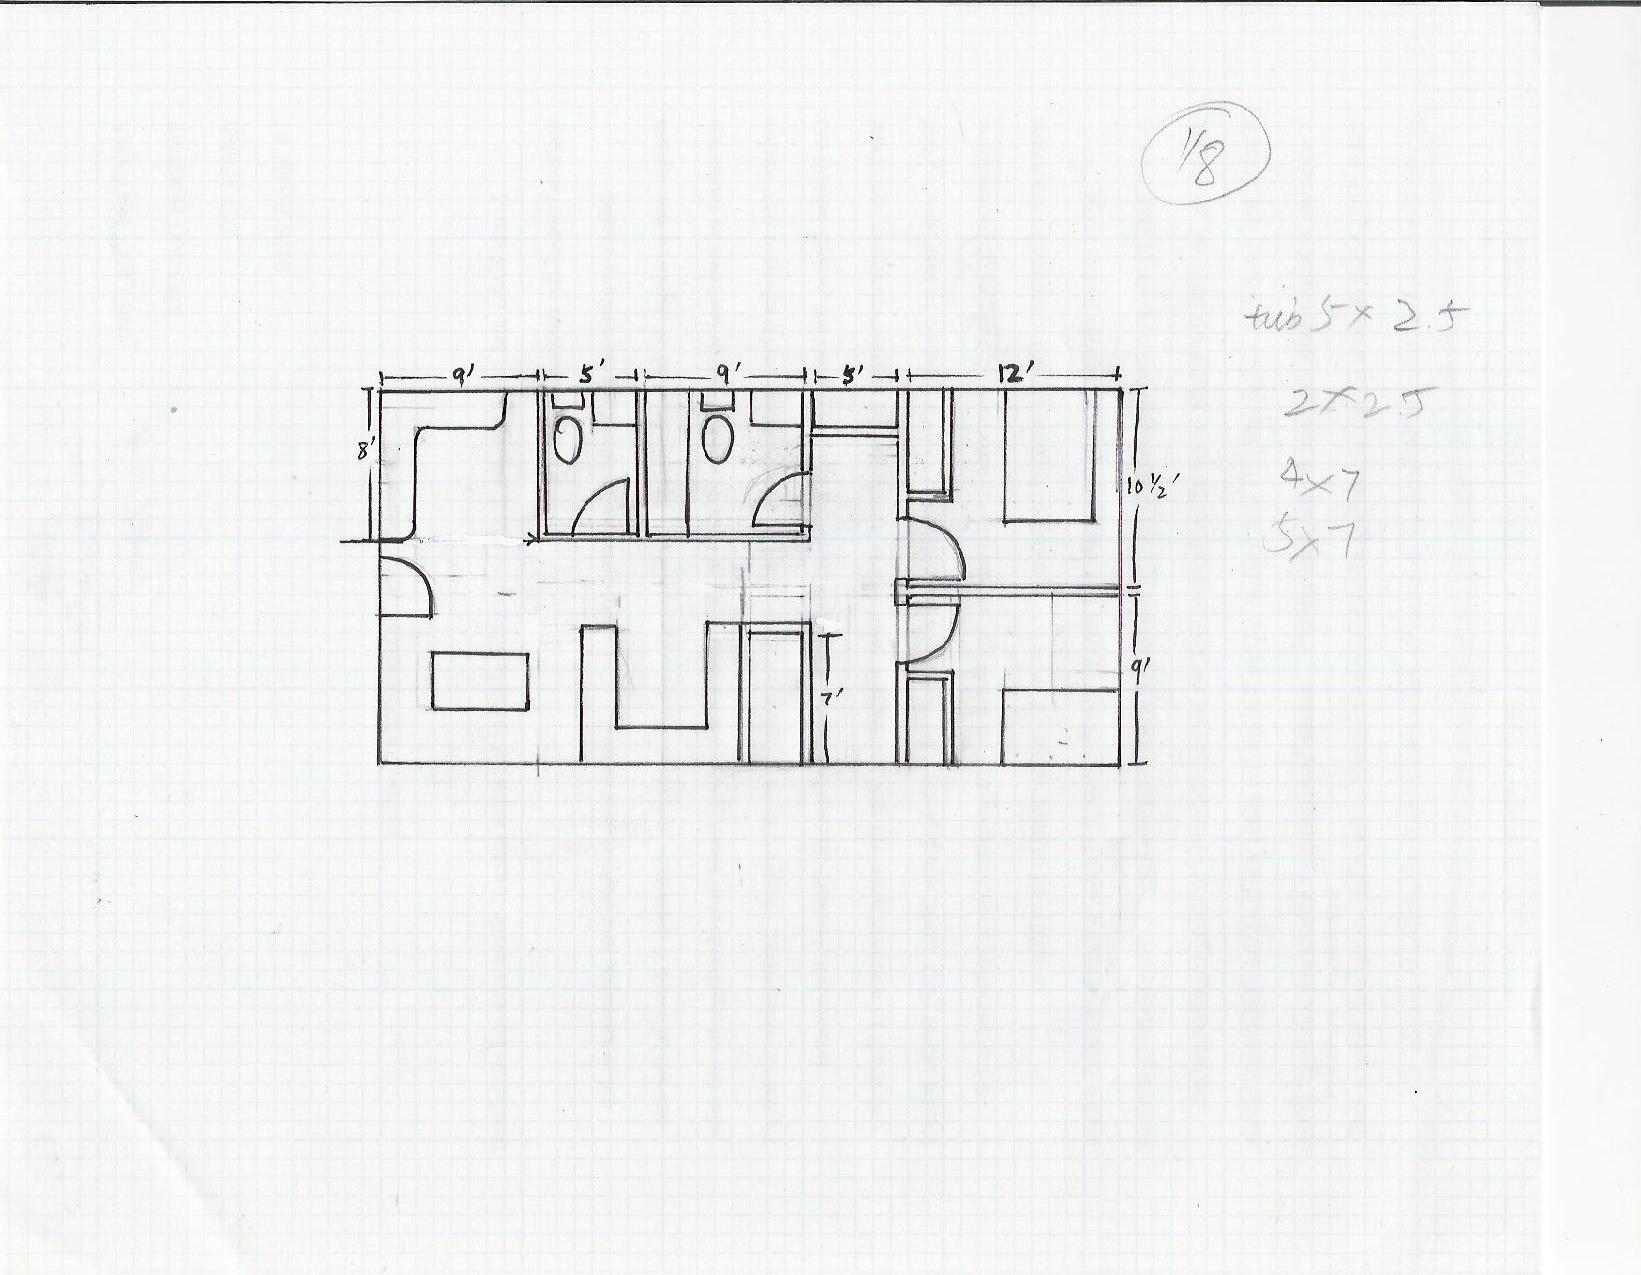 1/8
tub 5 x 2.5
2 x 2.5
4 x 7
5 x 7
9' 5' 9' 5' 12'
8'
10 1/2'
9'
7'